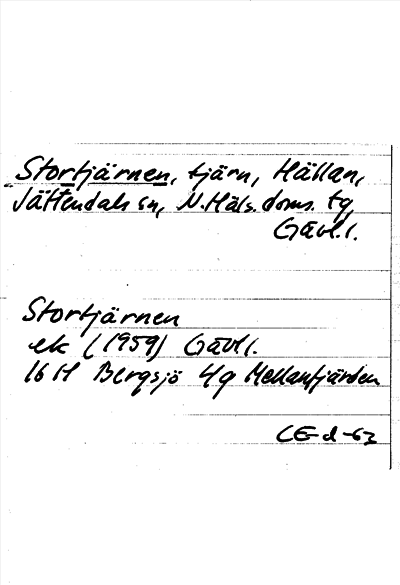 Stortjärnen, tjärn, Hällan,
Jättendals sn, N. Häls. doms. tg,
Gävl. l.
Stortjärnen
ek (1959) Gävl l.
16 H Bergsjö 4g Mellanfjärden
CE-d-63